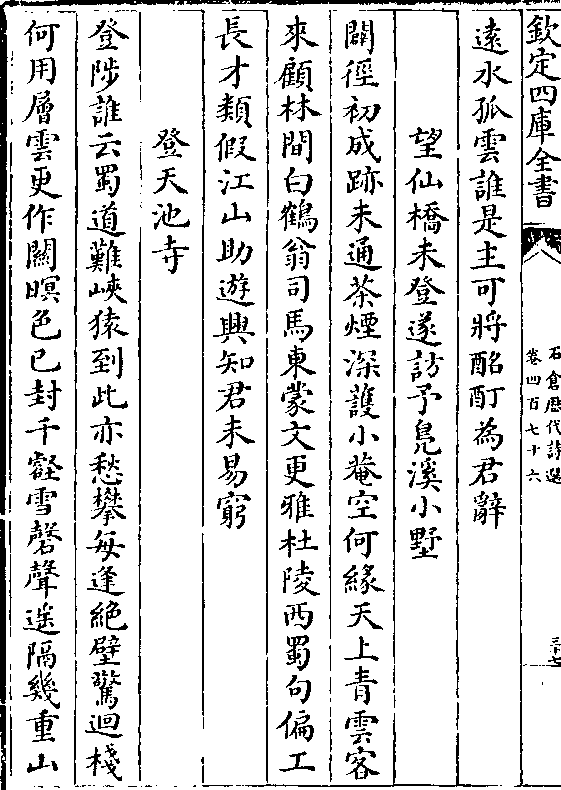 欽定四庫全書
石倉歷代詩選
卷四百七十六
三十七
遠水孤雲誰是主可將酩酊為君辭
望仙橋未登遂訪予鳬溪小墅
闢徑初成跡未通茶煙深護小菴空何緣天上青雲客
來顧林間白鶴翁司馬東蒙文更雅杜陵西蜀句偏工
長才類假江山助遊興知君未易窮
登天池寺
登陟誰云蜀道難峽猿到此亦愁攀每逢絶壁驚迴棧
何用層雲更作關暝色已封千壑雪磬聲遥隔幾重山